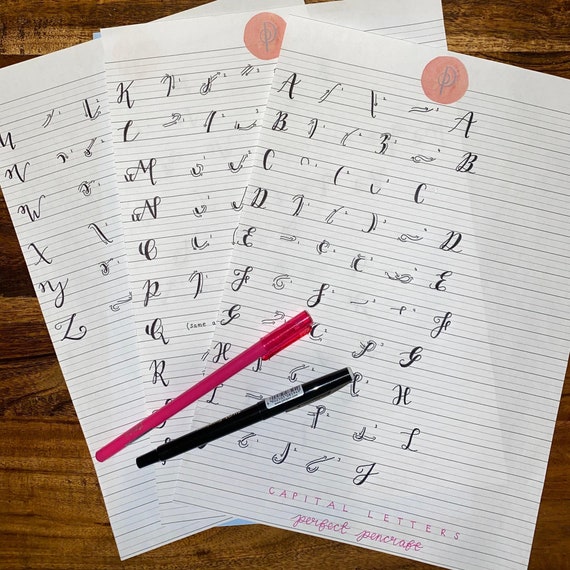 U
V
W
X
Y
Z
K
L
M
N
O
P
Q (same
R
P
A A
B B
C C
D D
E E
F F
G G
H H
I
J
CAPITAL LETTERS
perfect pencraft